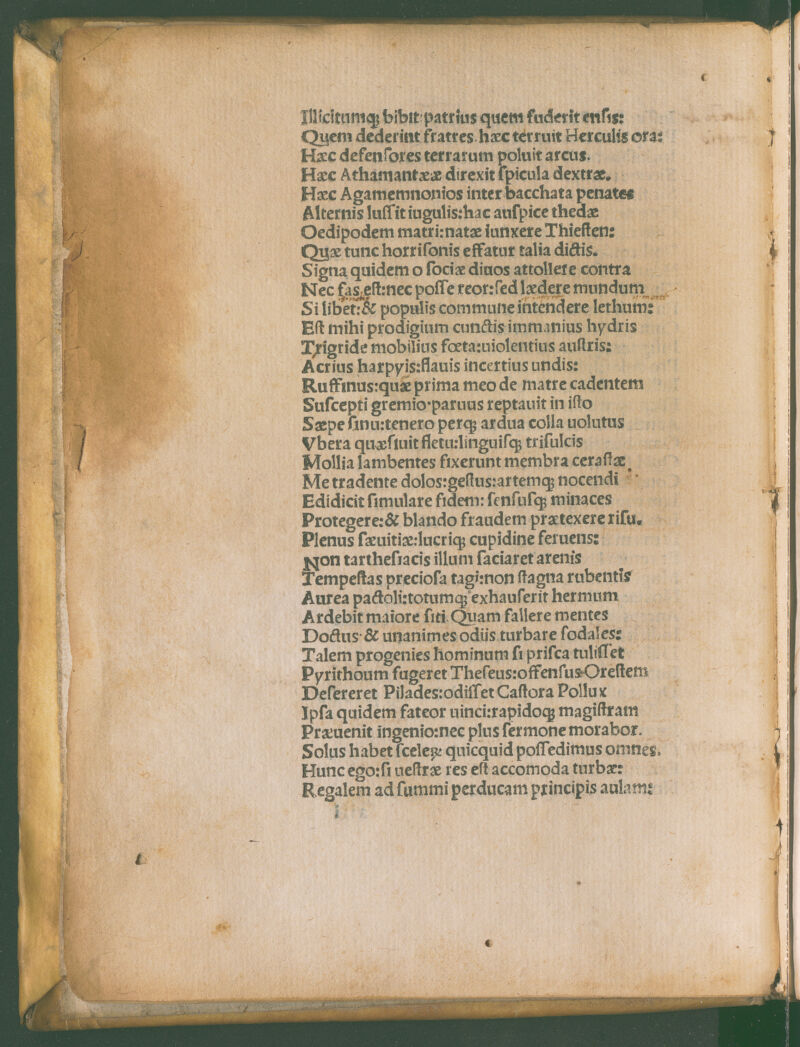 Illicitumq; bibit patrius quem fuderit enſis:
Quem dederint fratres. hæc terruit Herculis ora:
Hæc defenſores terrarum poluit arcus.
Hæc Athamantææ direxit ſpicula dextræ.
Hæc Agamemnonios inter bacchata penates
Alternis luſſit iugulis:hac auſpice thedæ
Oedipodem matri:natæ iunxere Thieſten:
Quæ tunc horriſonis effatur talia dictis.
Signa quidem o ſociæ diuos attollere contra
Nec fas eſt:nec poſſe reor:ſed lædere mundum
Si libet:& populis commune intendere lethum:
Eſt mihi prodigium cunctis immanius hydris
Trigride mobilius fœta:uiolentius auſtris:
Acrius harpyis:flauis incertius undis:
Ruffinus:quæ prima meo de matre cadentem
Suſcepti gremio·paruus reptauit in iſto
Sæpe ſinu:tenero perq; ardua colla uolutus
Vbera quæſiuit fletu:linguiſq; triſulcis
Mollia lambentes fixerunt membra ceraſtæ
Me tradente dolos:geſtus:artemq; nocendi
Edidicit ſimulare fidem: ſenſuſq; minaces
Protegere:& blando fraudem prætexere riſu.
Plenus ſæuitiæ:lucriq; cupidine feruens:
Non tartheſiacis illum ſaciaret arenis
Tempeſtas precioſa tagi:non ſtagna rubentis
Aurea pactoli:totumq; exhauſerit hermum
Ardebit maiore ſiti. Quam fallere mentes
Doctus· & unanimes odiis turbare ſodales:
Talem progenies hominum ſi priſca tuliſſet
Pyrithoum fugeret Theſeus:offenſus Oreſtem
Deſereret Pilades:odiſſet Caſtora Pollux
Ipſa quidem fateor uinci:rapidoq; magiſtram
Præuenit ingenio:nec plus ſermone morabor.
Solus habet ſceleꝝ quicquid poſſedimus omnes.
Hunc ego:ſi ueſtræ res eſt accomoda turbæ:
Regalem ad ſummi perducam principis aulam: